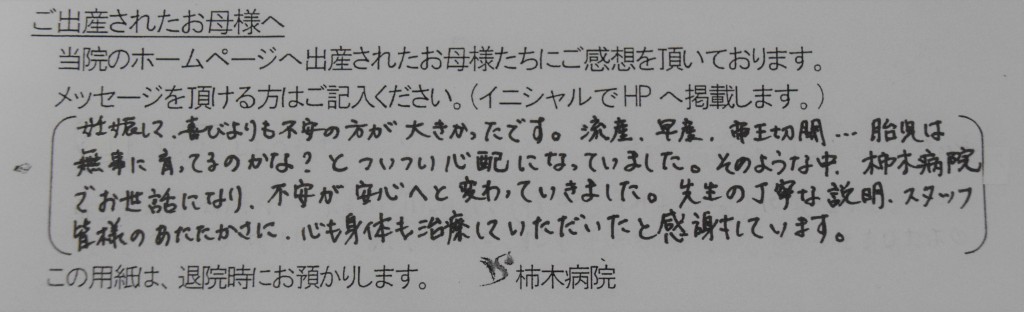 ご出産されたお母様へ
当院のホームページへ出産されたお母様たちにご感想を頂いております。
メッセージを頂ける方はご記入ください。(イニシャルでHPへ掲載します。)
妊娠して、喜びよりも不安の方が大きかったです。流産、早産、帝王切開…胎児は
無事に育ってるのかな?とついつい心配になっていました。そのような中、柿木病院
でお世話になり、不安が安心へと変わっていきました。先生の丁寧な説明、スタッフ
皆様のあたたかさに、心も身体も治療していただいたと感謝しています。
この用紙は、退院時にお預かりします。 柿木病院